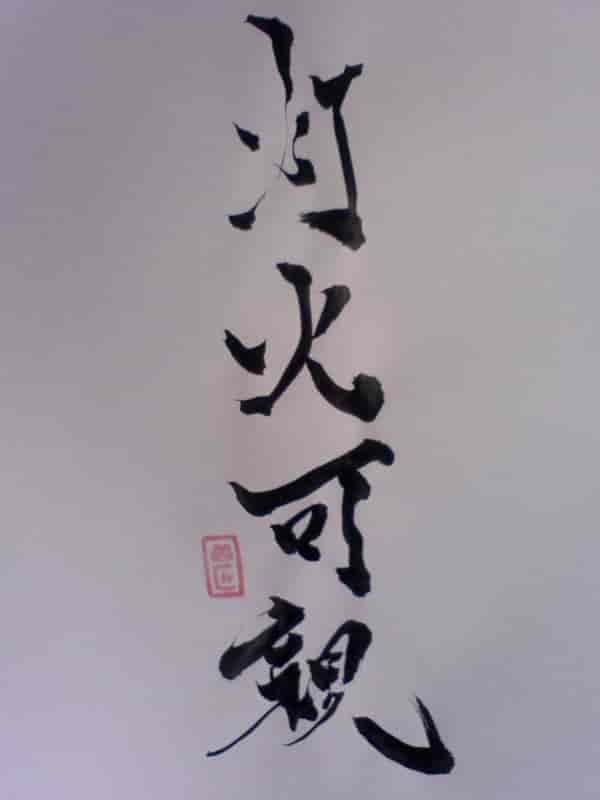 灯火可親